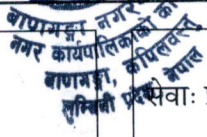 बाणगङ्गा नगर
नगर कार्यपालिकाको का
बाणगङ्गा, कपिलवस्तु
लुम्बिनी प्रदेश नेपाल
सेवाः